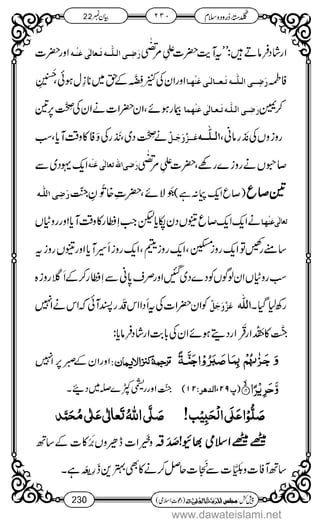 بیان نمبر22
۲۳۰
گلدستۂ درود و سلام
ارشاد فرماتے ہیں: ’’یہ آیت حضرت علی مرتضٰی رَضِیَ اللہُ تَعَالٰی عَنْہُ اور حضرت
فاطمہ رَضِیَ اللہُ تَعَالٰی عَنْہَا اور ان کی کنیز فِضّہ کے حق میں نازل ہوئی، حَسَنَیْنِ
کریمین رَضِیَ اللہُ تَعَالٰی عَنْہُما بیمار ہوئے، ان حضرات نے ان کی صحّت پر تین
روزوں کی نذر مانی، اللہ عَزَّوَجَلَّ نے صحت دی، نذر کی وفا کا وقت آیا، سب
صاحبوں نے روزے رکھے، حضرت علی مرتضٰی رَضِیَ اللہُ تَعَالٰی عَنْہُ ایک یہودی سے
تین صاع (صاع ایک پیمانہ ہے) جَو لائے، حضرتِ خاتونِ جنّت رَضِیَ اللہُ
تَعَالٰی عَنْہَا نے ایک ایک صاع تینوں دن پکایا لیکن جب افطار کا وقت آیا اور روٹیاں
سامنے رکھیں تو ایک روز مسکین، ایک روز یتیم، ایک روز اسیر آیا اور تینوں روز یہ
سب روٹیاں ان لوگوں کو دے دی گئیں اور صرف پانی سے افطار کرکے اگلا روزہ
رکھ لیا گیا۔ اللہ عَزَّوَجَلَّ کو ان حضرات کی یہ ادا اس قدر پسند آئی کہ اس نے انہیں
جنّت کا حقدار قرار دیتے ہوئے ان کی بابت ارشاد فرمایا:
وَ جَزٰىهُمْ بِمَا صَبَرُوْا جَنَّةً
وَّ حَرِیْرًاۙ(۱۲) (پ۲۹، الدھر: ۱۲)
ترجمۂ کنزالایمان: اور ان کے صبر پر انہیں
جنّت اور ریشمی کپڑے صلہ میں دیئے۔
صَلُّوْا عَلَی الْحَبِیْب! صَلَّی اللہُ تَعَالٰی عَلٰی مُحَمَّد
میٹھے میٹھے اسلامی بھائیو! صَدَقہ و خیرات ڈھیروں بَرَکات کے ساتھ
ساتھ آفات و بَلِیّات سے نَجات حاصل کرنے کا بھی بہترین ذریعہ ہے۔
230
www.dawateislami.net